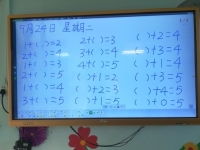 9月24日 星期二
1+( )=2 2+( )=3 ( )+2=4
2+( )=4 3+( )=4 ( )+3=4
1+( )=3 4+( )=5 ( )+1=4
2+( )=5 ( )+1=2 ( )+3=5
1+( )=4 ( )+2=3 ( )+4=5
3+( )=5 ( )+1=5 ( )+0=5